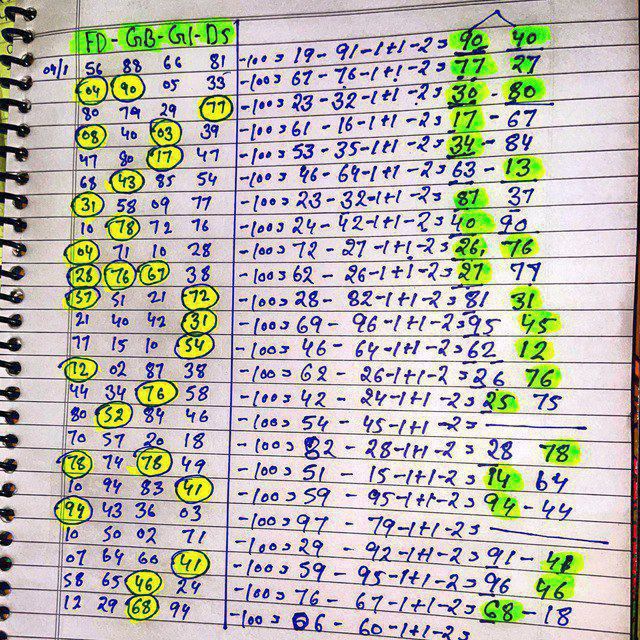 FD - GB - G1 - DS
04/1 56 88 66 81 -100= 19 - 91-1+1-2= 90 40
04 90 05 33 -100= 67 - 76-1+1-2= 77 27
80 79 29 77 -100= 23 - 32-1+1-2= 30 - 80
08 40 03 39 -100= 61 - 16-1+1-2= 17 - 67
47 80 17 47 -100= 53 - 35-1+1-2= 34 - 84
68 43 85 54 -100= 46 - 64-1+1-2= 63 - 13
31 58 09 77 -100= 23 - 32-1+1-2= 87 37
10 78 72 76 -100= 24 - 42-1+1-2= 40 90
04 71 10 28 -100= 72 - 27-1+1-2= 26, 76
28 76 67 38 -100= 62 - 26-1+1-2= 27 77
57 51 21 72 -100= 28 - 82-1+1-2= 81 31
21 40 42 31 -100= 69 - 96-1+1-2= 95 45
77 15 10 54 -100= 46 - 64-1+1-2= 62 12
12 02 87 38 -100= 62 - 26-1+1-2= 26 76
44 34 76 58 -100= 42 - 24-1+1-2= 25 75
80 52 84 46 -100= 54 - 45-1+1-2=
70 57 20 18 -100= 82 - 28-1+1-2= 28 78
78 74 78 49 -100= 51 - 15-1+1-2= 14 64
10 94 83 41 -100= 59 - 95-1+1-2= 94 - 44
94 43 36 03 -100= 97 - 79-1+1-2=
10 50 02 71 -100= 29 - 92-1+1-2= 91 - 41
07 64 60 41 -100= 59 - 95-1+1-2= 96 46
58 65 46 24 -100= 76 - 67-1+1-2= 68 - 18
12 29 68 94 -100= 06 - 60-1+1-2=